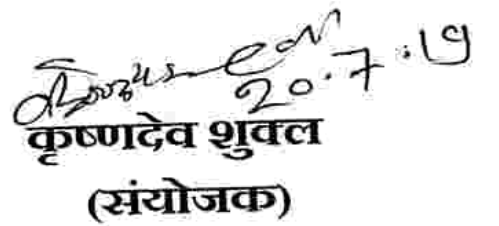 20.7.19
कृष्णदेव शुक्ल
(संयोजक)